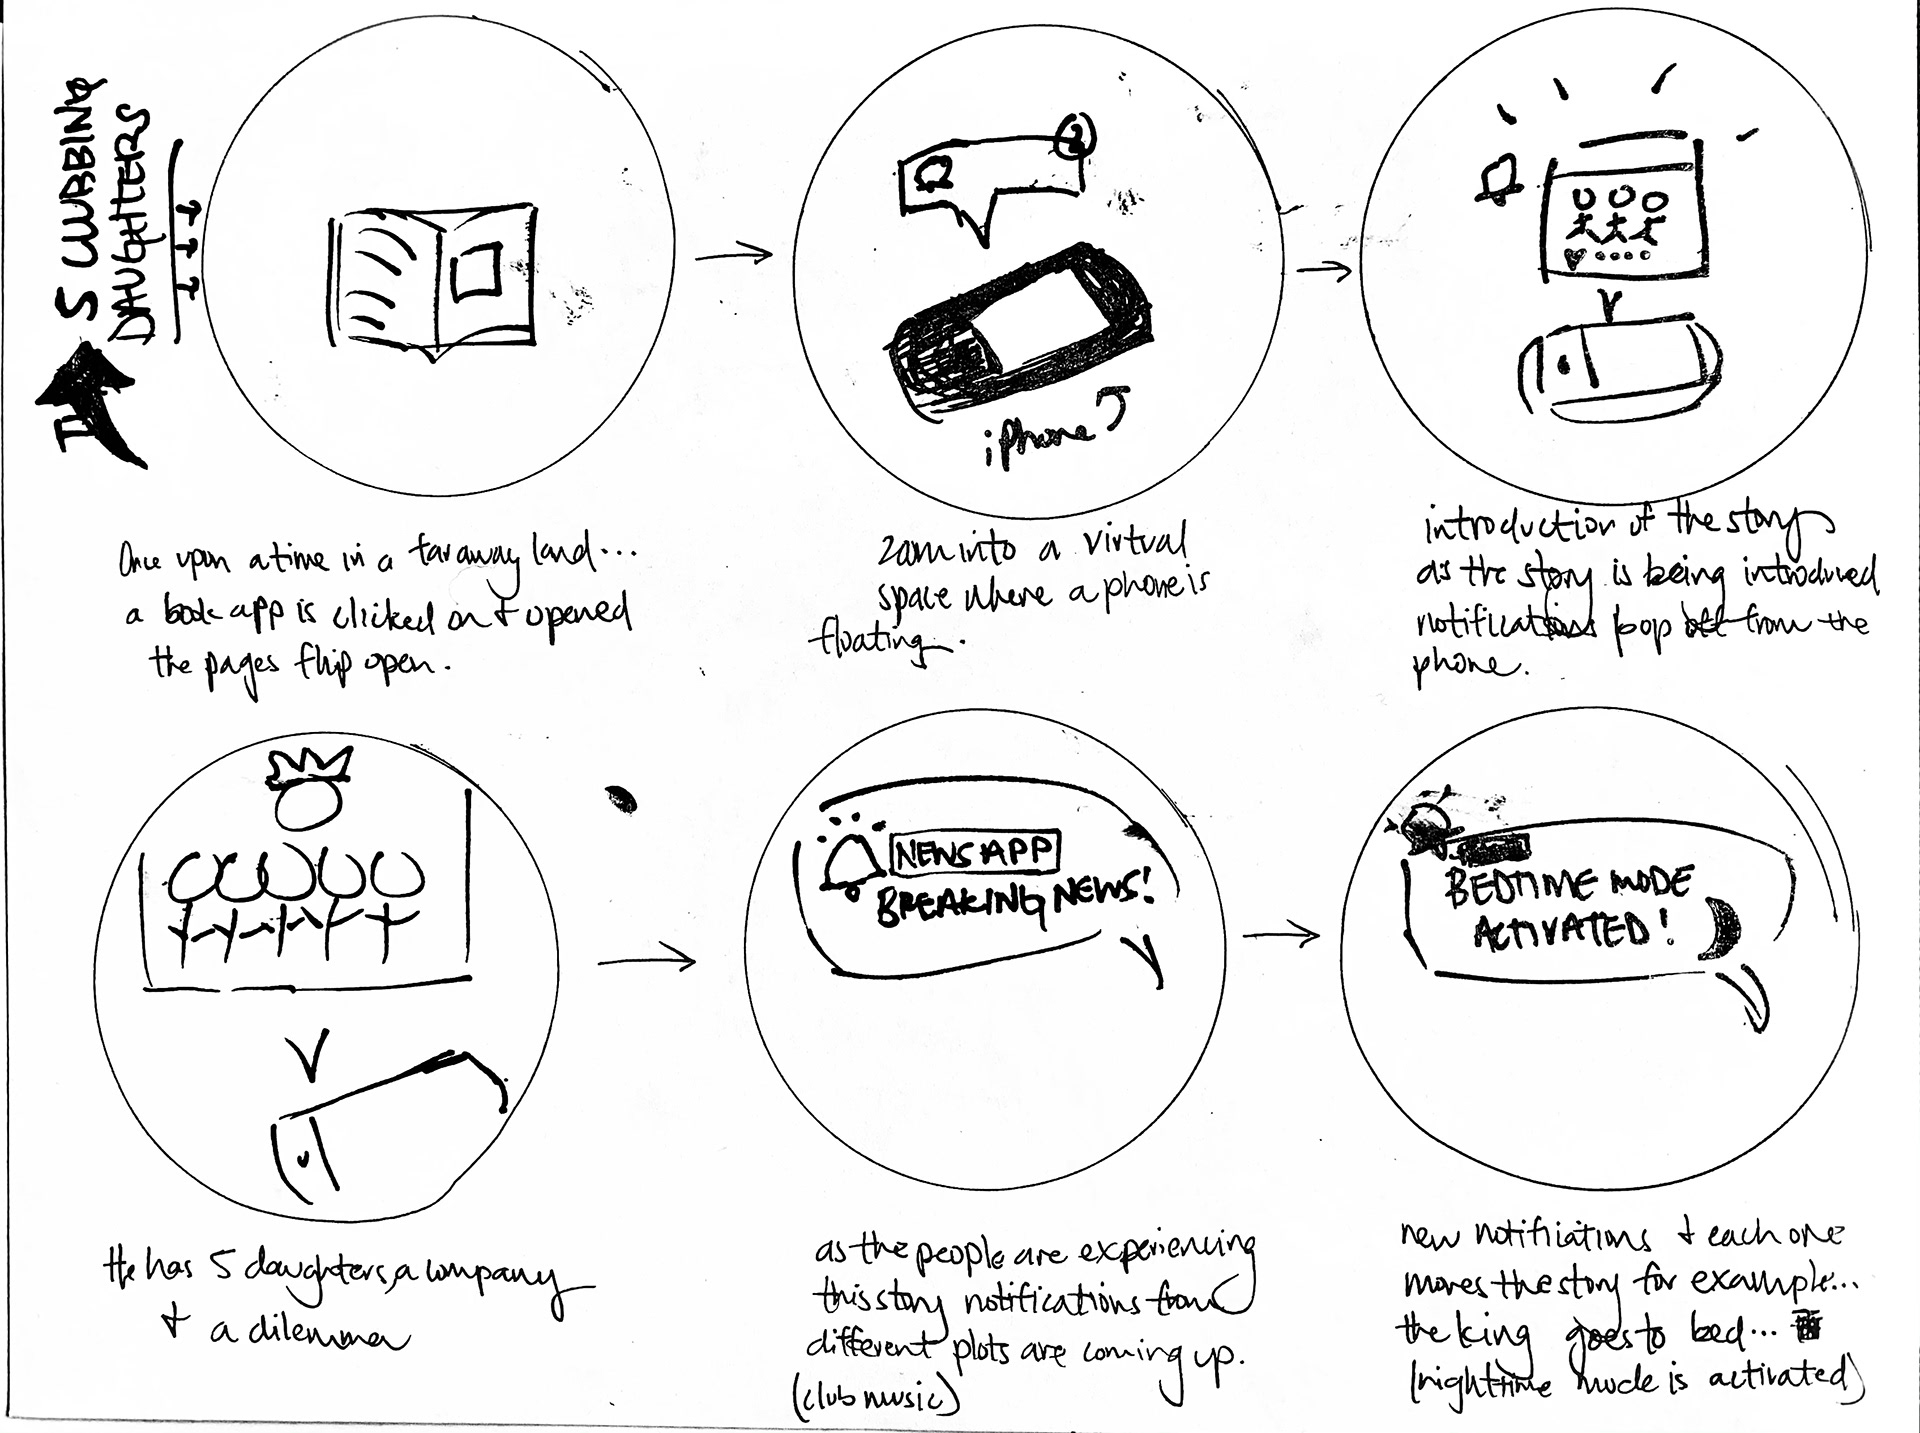 5 CLUBBING
DAUGHTERS
iPhone 5
Once upon a time in a faraway land...
a book app is clicked on + opened
the pages flip open.
zoom into a virtual
space where a phone is
floating.
introduction of the story
as the story is being introduced
notifications pop off from the
phone.
He has 5 daughters, a company
+ a dilemma
NEWS APP
BREAKING NEWS!
as the people are experiencing
this story notifications from
different plots are coming up.
(club music)
BEDTIME MODE
ACTIVATED!
new notifications + each one
moves the story for example...
the king goes to bed...
(nighttime mode is activated)